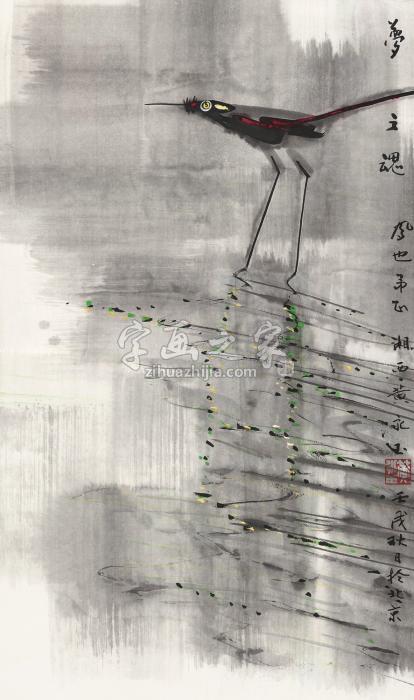 夢之魂 也弟正 湘西黄永玉 壬戌秋日於北京
字画之家
zihuazhijia.com